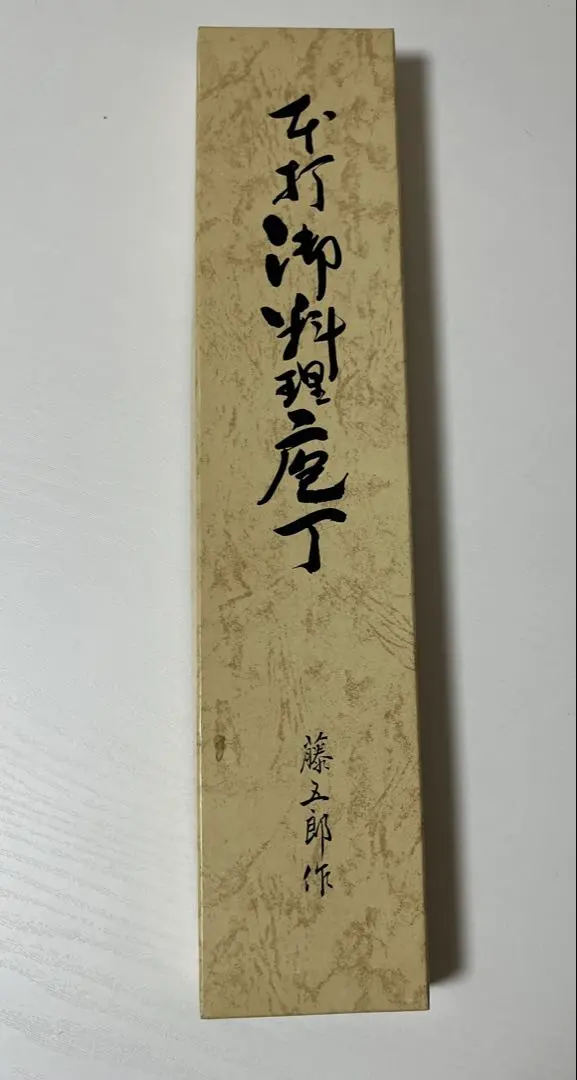 本打御料理庖丁
藤五郎作